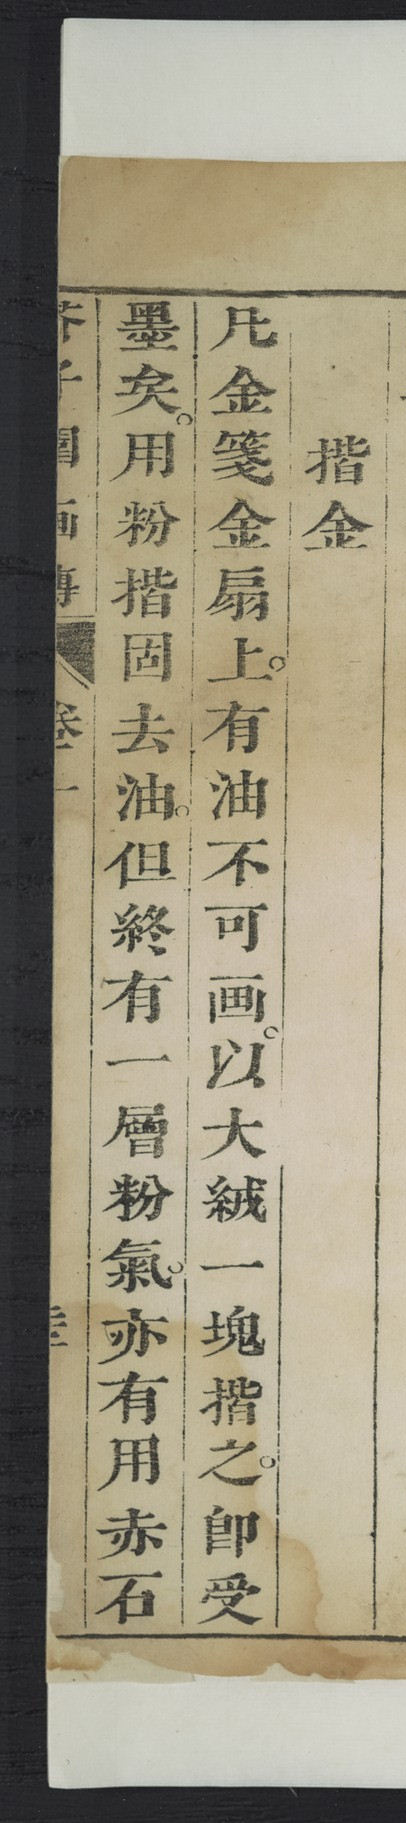 揩金
凢金箋金扇上。有油不可画。以大絨一塊揩之。卽受
墨矣。用粉揩固去油。但終有一層粉氣。亦有用赤石
芥子園画傳 卷一